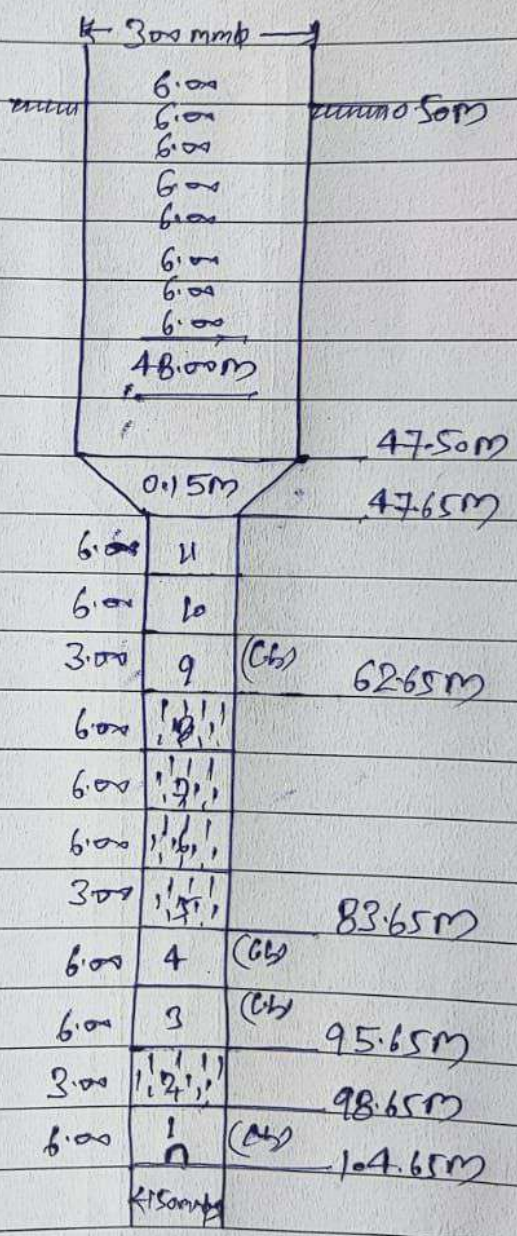 300 mmφ
6.00
6.00 0.50M
6.00
6.00
6.00
6.00
6.00
6.00
48.00M
47.50M
0.15M
47.65M
6.00 11
6.00 10
3.00 9 62.65M
6.00 8
6.00 7
6.00 6
3.00 5 83.65M
6.00 4
6.00 3 95.65M
3.00 2 98.65M
6.00 1 104.65M
150mmφ